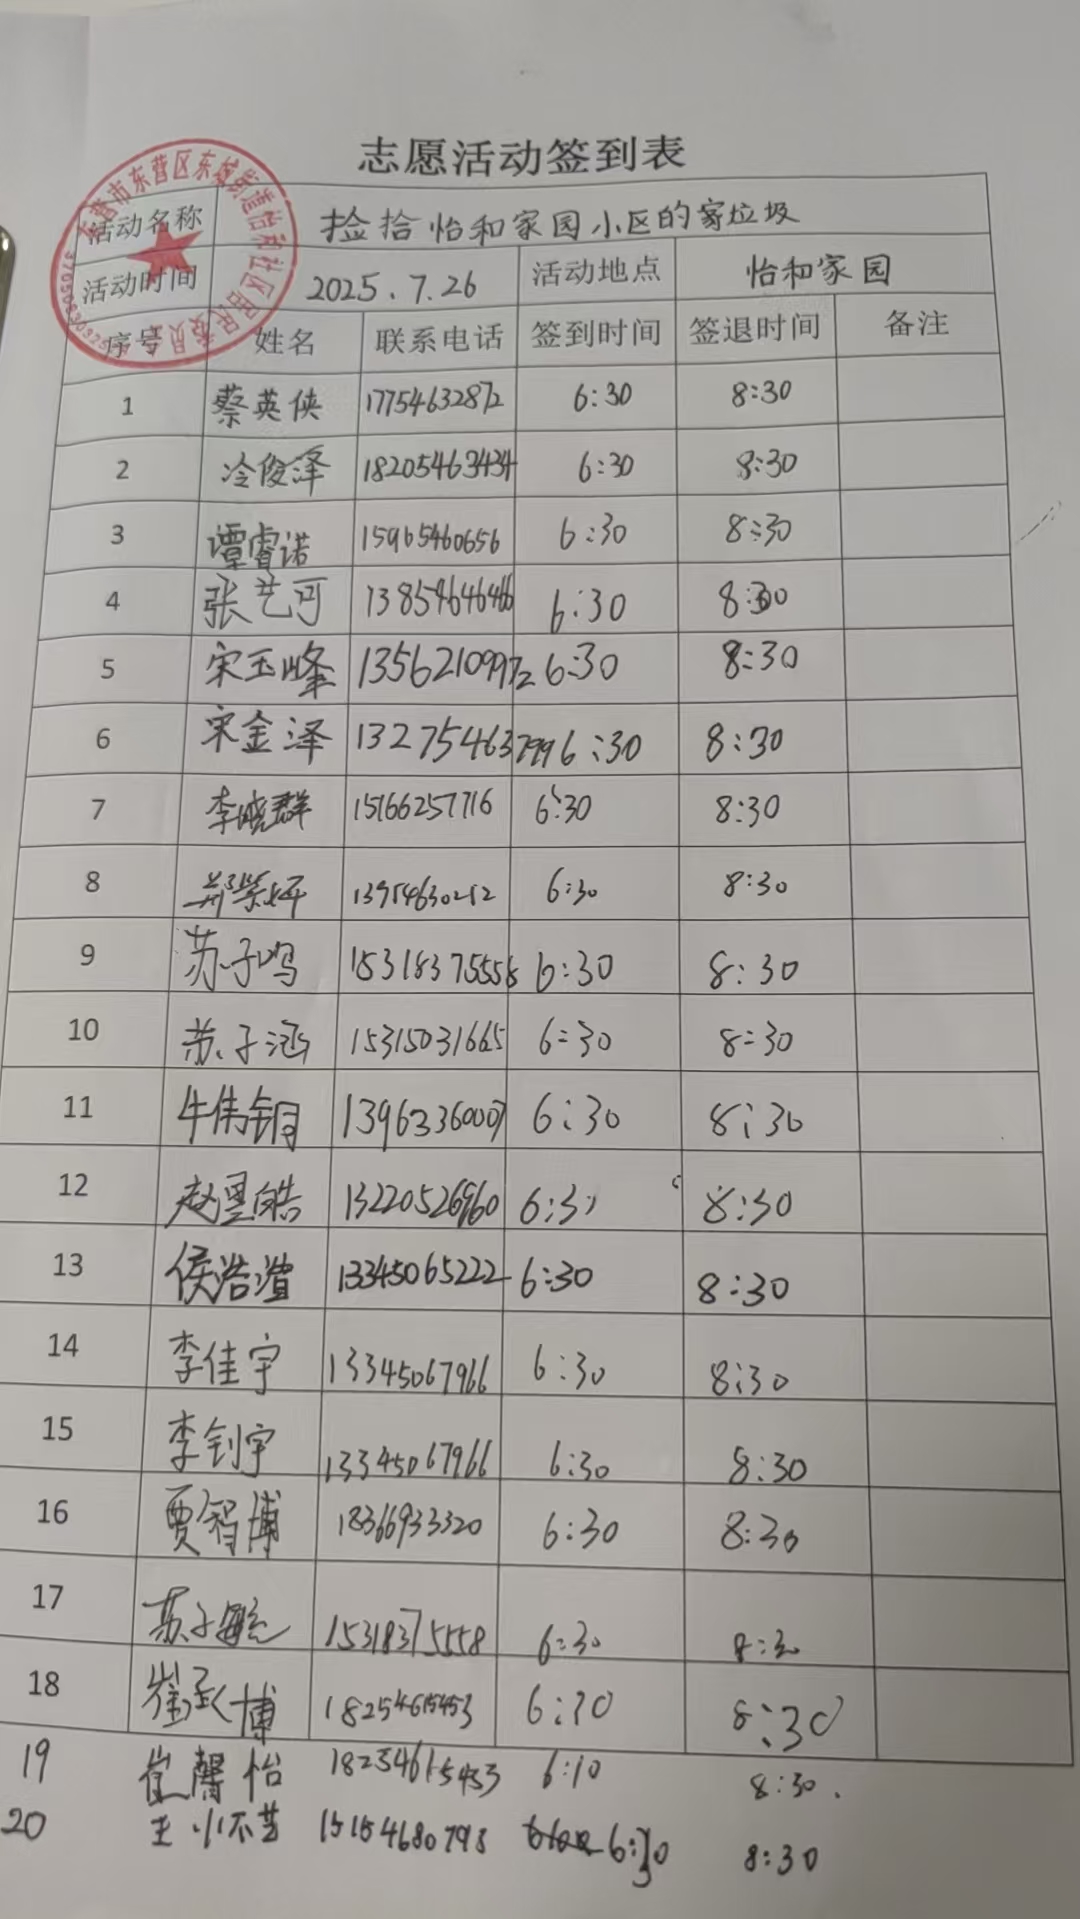 志愿活动签到表
活动名称 捡拾怡和家园小区的垃圾
活动时间 2025.7.26 活动地点 怡和家园
序号 姓名 联系电话 签到时间 签退时间 备注
1 蔡英侠 17754632872 6:30 8:30
2 冷俊泽 18205463434 6:30 8:30
3 谭睿诺 15965460656 6:30 8:30
4 张艺可 13854646466 6:30 8:30
5 宋玉峰 13562109972 6:30 8:30
6 宋金泽 13275463799 6:30 8:30
7 李晓群 15166257716 6:30 8:30
8 荆紫坪 13954630212 6:30 8:30
9 苏子鸣 15318375558 6:30 8:30
10 苏子涵 15315031665 6:30 8:30
11 牛伟铜 13963360007 6:30 8:30
12 赵星皓 13220526960 6:30 8:30
13 侯浩 13345065222 6:30 8:30
14 李佳宇 13345067966 6:30 8:30
15 李钊宇 13345067966 6:30 8:30
16 贾智博 18366933320 6:30 8:30
17 苏子 15318375558 6:30 8:30
18 崔 博 18254615453 6:30 8:30
19 崔馨怡 18254615453 6:10 8:30.
20 王 15154680798 6:30 8:30